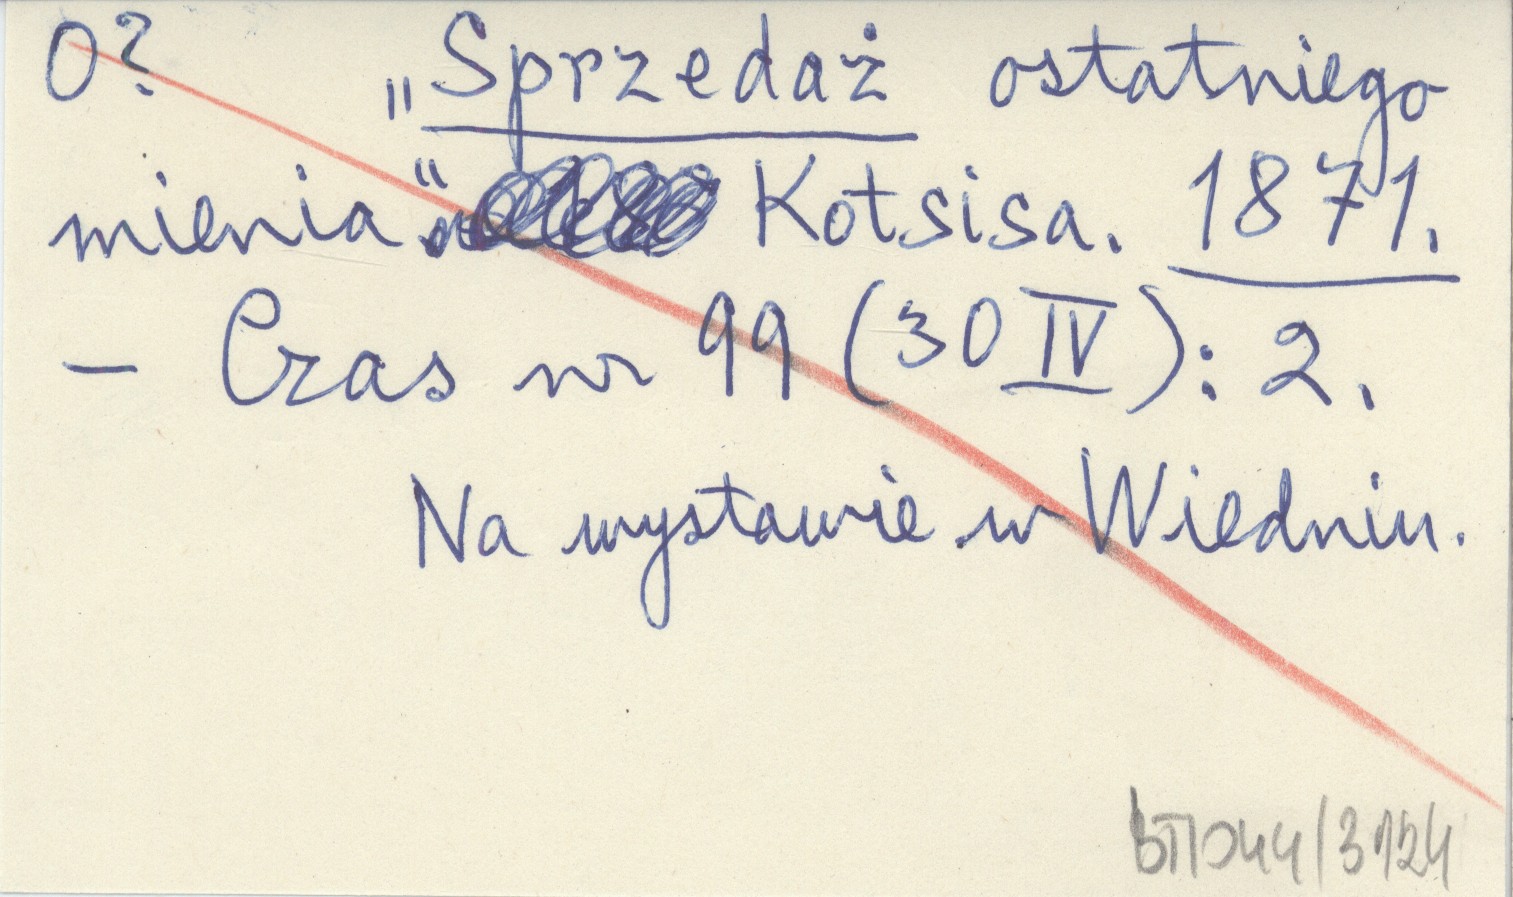 O? „Sprzedaż ostatniego
mienia“ Kotsisa. 1871.
– Czas nr 99 (30 IV): 2.
Na wystawie w Wiedniu.